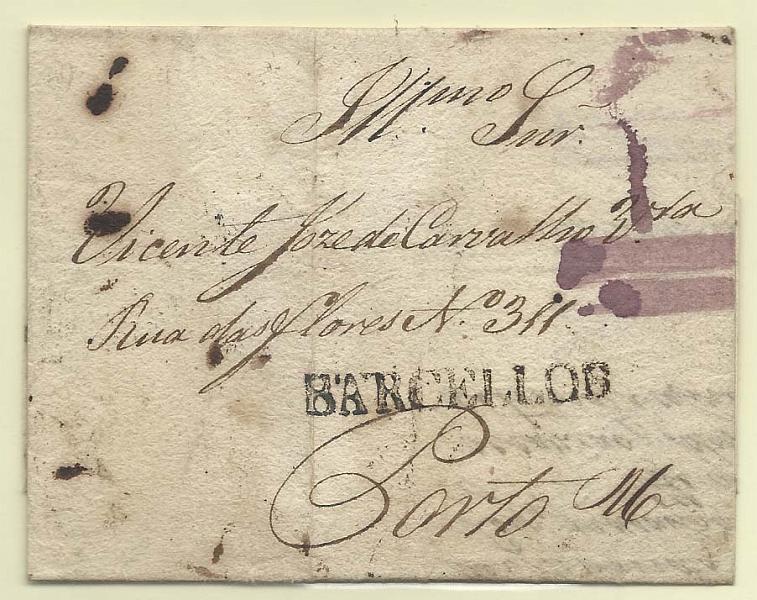 Illmo Snr.
Vicente Joze de Carvalho Vra
Rua das flores N.o 311
BARCELLOS
Porto